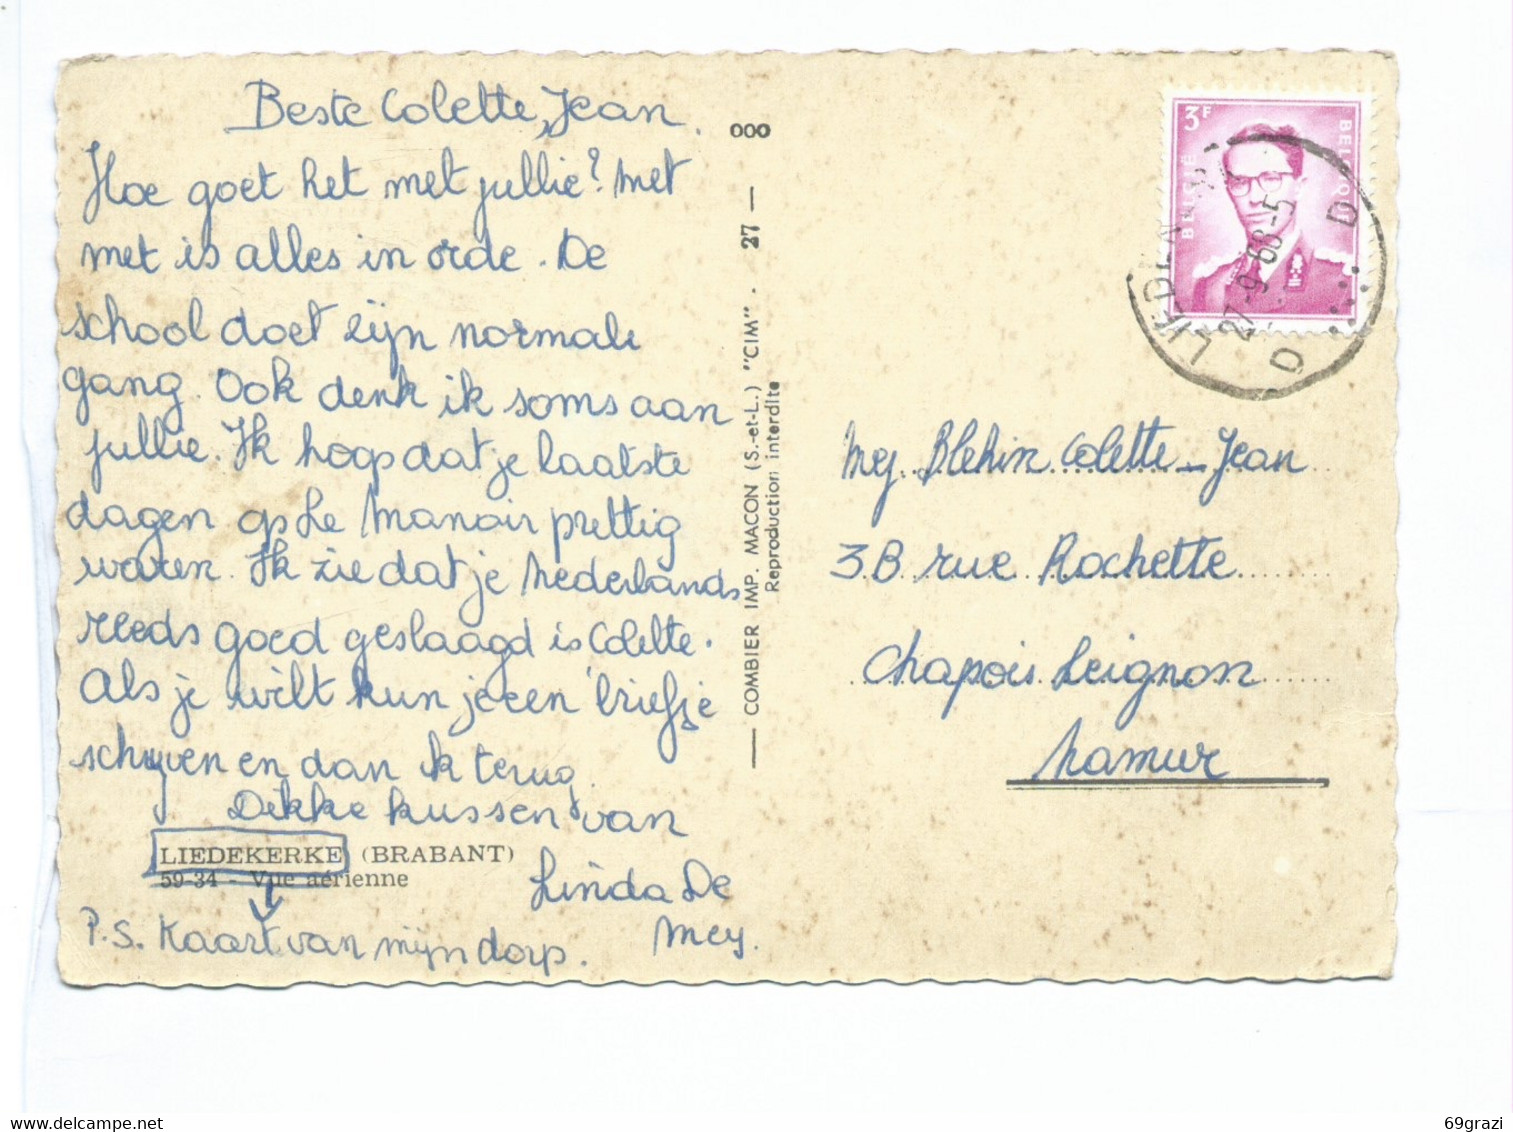 Beste Colette, Jean.
Hoe goet het met jullie? Met
met is alles in orde. De
school doet zijn normale
gang. Ook denk ik soms aan
jullie. Ik hoop dat je laatste
dagen op Le Manoir prettig
waren. Ik zie dat je Nederlands
reeds goed geslaagd is Colette.
Als je wilt kun je een briefje
schrijven en dan ik terug.
Dikke kussen van
LIEDEKERKE (BRABANT)
59-34 - Vue aérienne
Linda De
Mey.
P.S. Kaart van mijn dorp.
000
COMBIER IMP. MACON (S.-et-L.) "CIM" . 27
Reproduction interdite
3F
BELGIË
BELGIQUE
27-9-68-5
D D
Mej. Blehin Colette - Jean
3B rue Rochette
Chapois Leignon
Namur
delcampe.net
69grazi